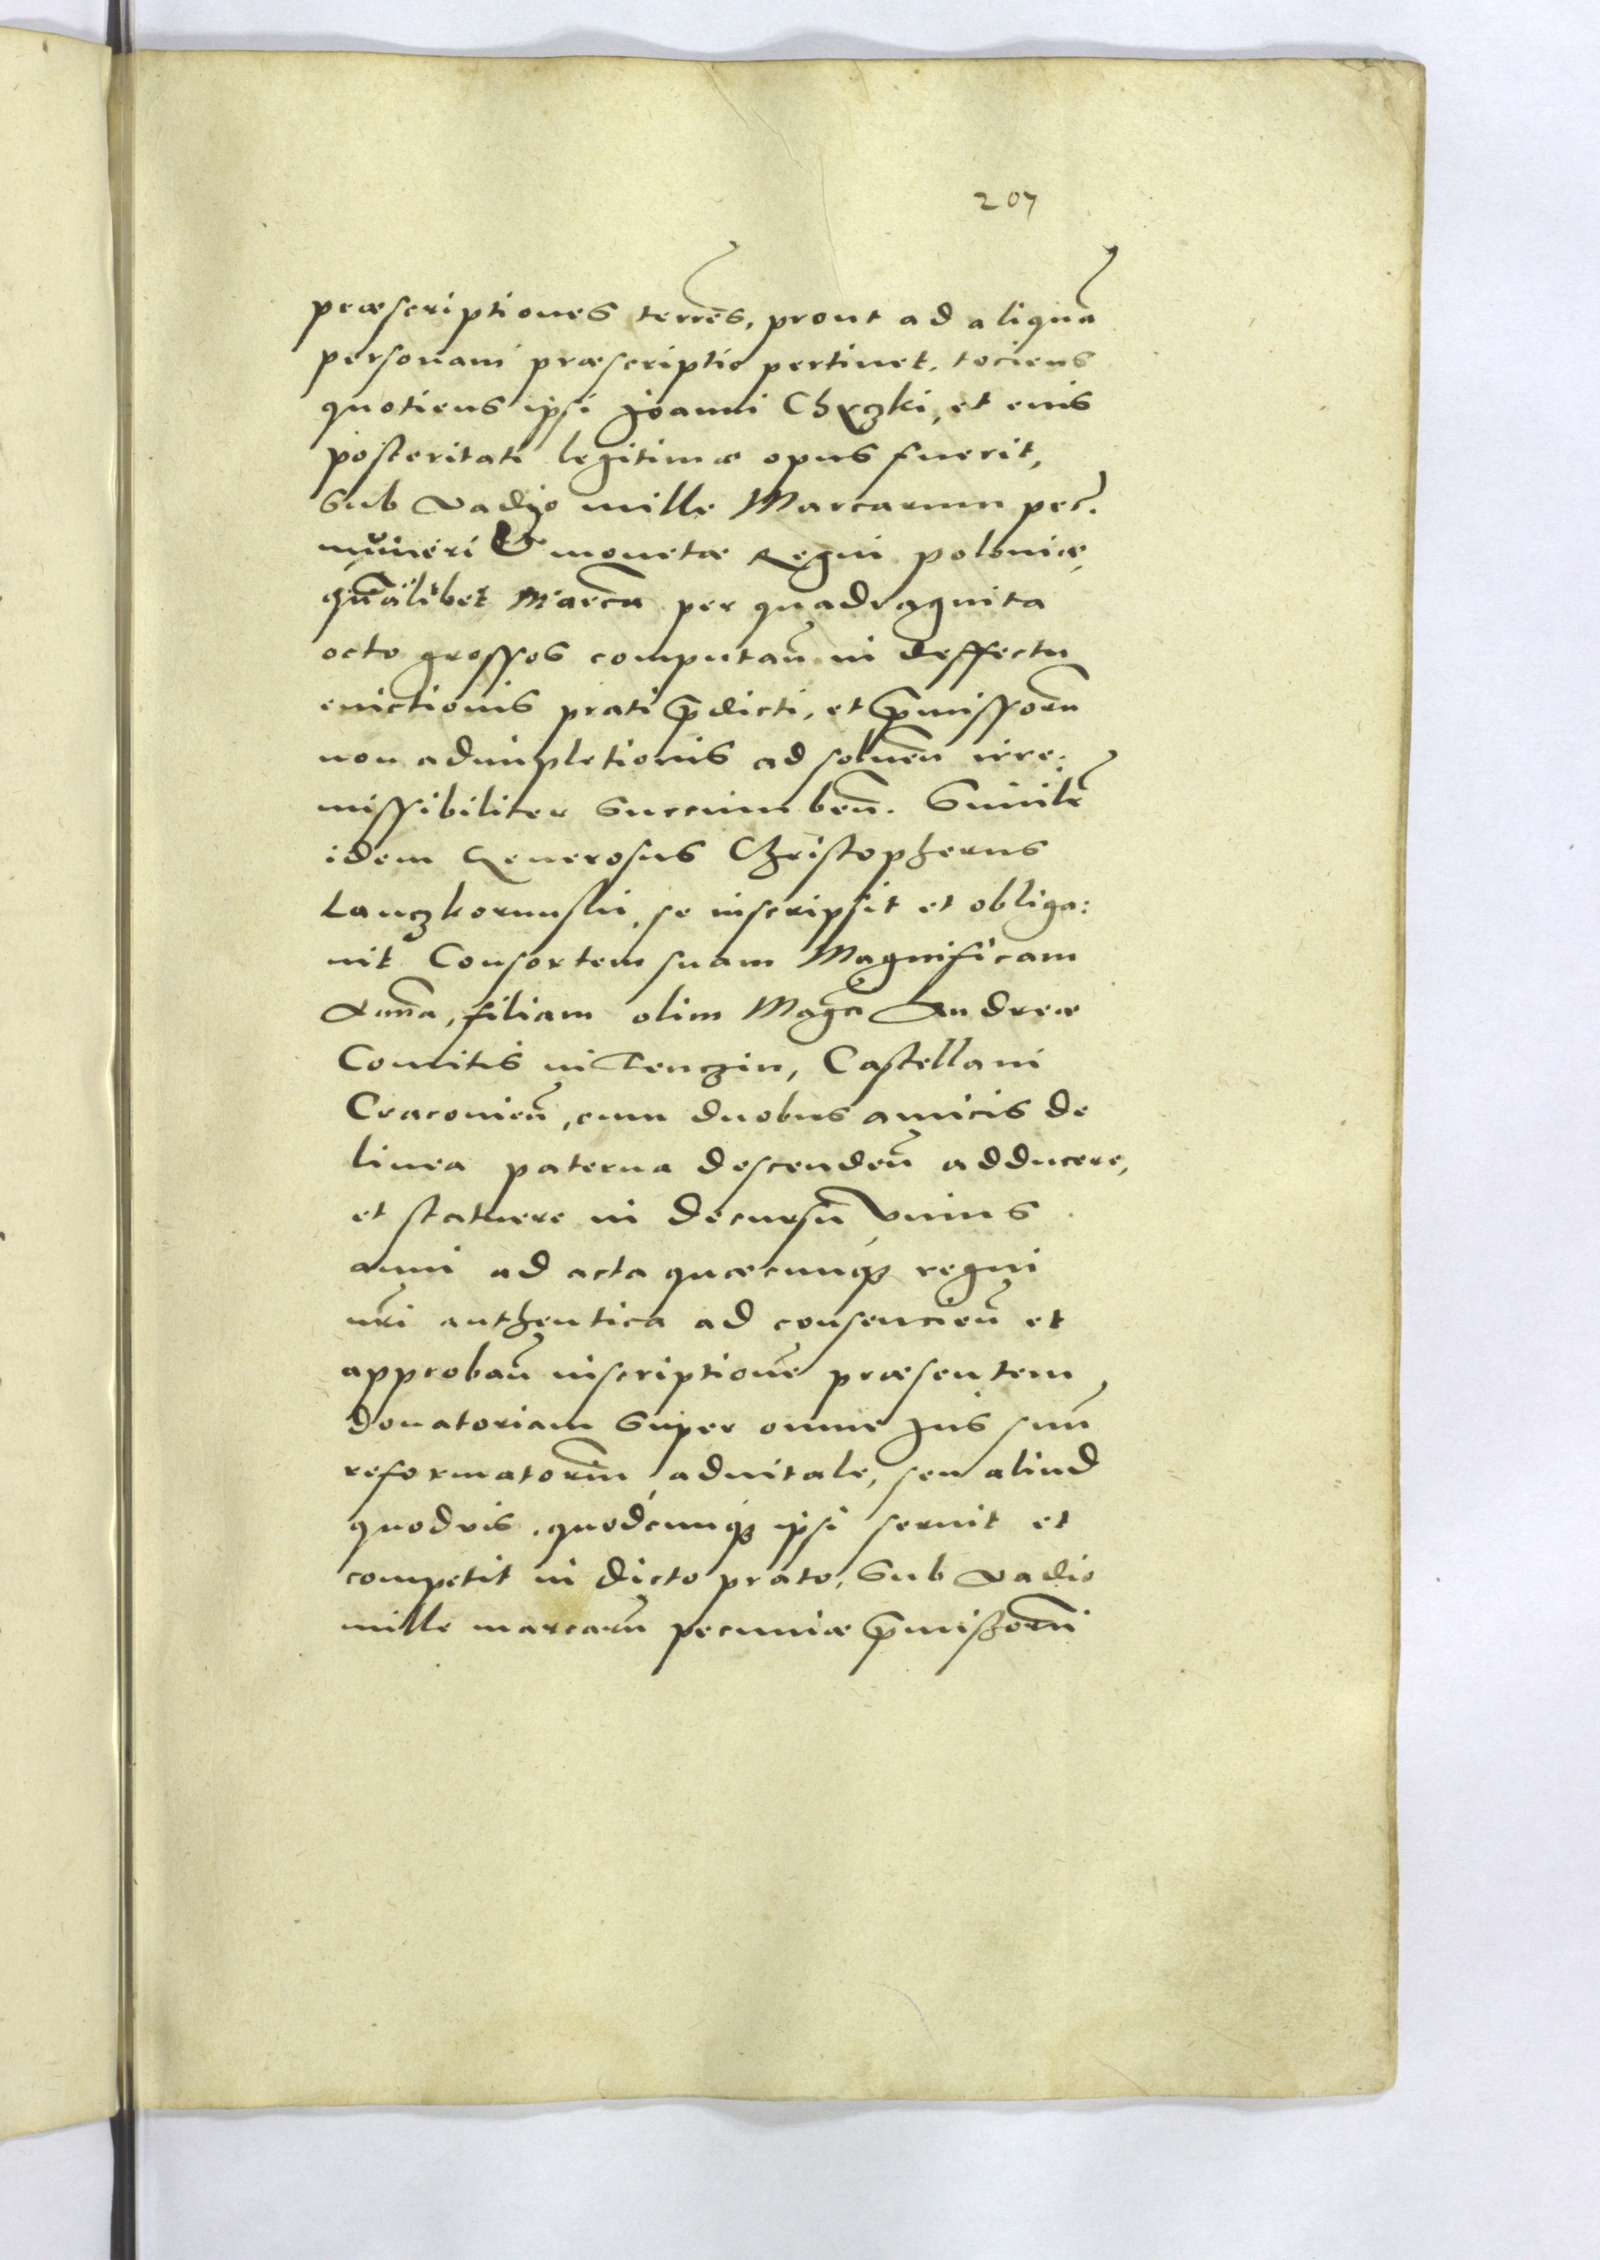 207
præscriptiones terrēs, prout ad aliquā
personam præscriptio pertinet, tociens
quotiens ipsi Joanni Chyzki, et eius
posteritati legitimæ opus fuerit,
sub vadio mille Marcarum pec.
numeri & monetæ Regni poloniæ,
quālibet Marcā per quadraginta
octo grossos computan̄ in deffectu
euictionis prati p̄dicti, et p̄missorū
non adimpletionis ad soluen̄ irre:
missibiliter succumben̄. Similr̄
idem Generosus Christopherus
Lanczkorunski, se inscripsit et obliga:
uit Consortem suam Magnificam
Annā, filiam olim Magci Andreæ
Comitis in Tenczin, Castellani
Cracouien̄, cum duobus amicis de
linea paterna descenden̄ adducere,
et statuere in decursū vnius
anni ad acta quæcunq; regni
nr̄i authentica ad consencien̄ et
approban̄ inscriptionē præsentem
donatoriam super omne Jus suū
reformatoriū aduitale, seu aliud
quoduis, quodcunq; ipsi seruit et
competit in dicto prato, sub vadio
mille marcarū pecuniæ p̄missorū